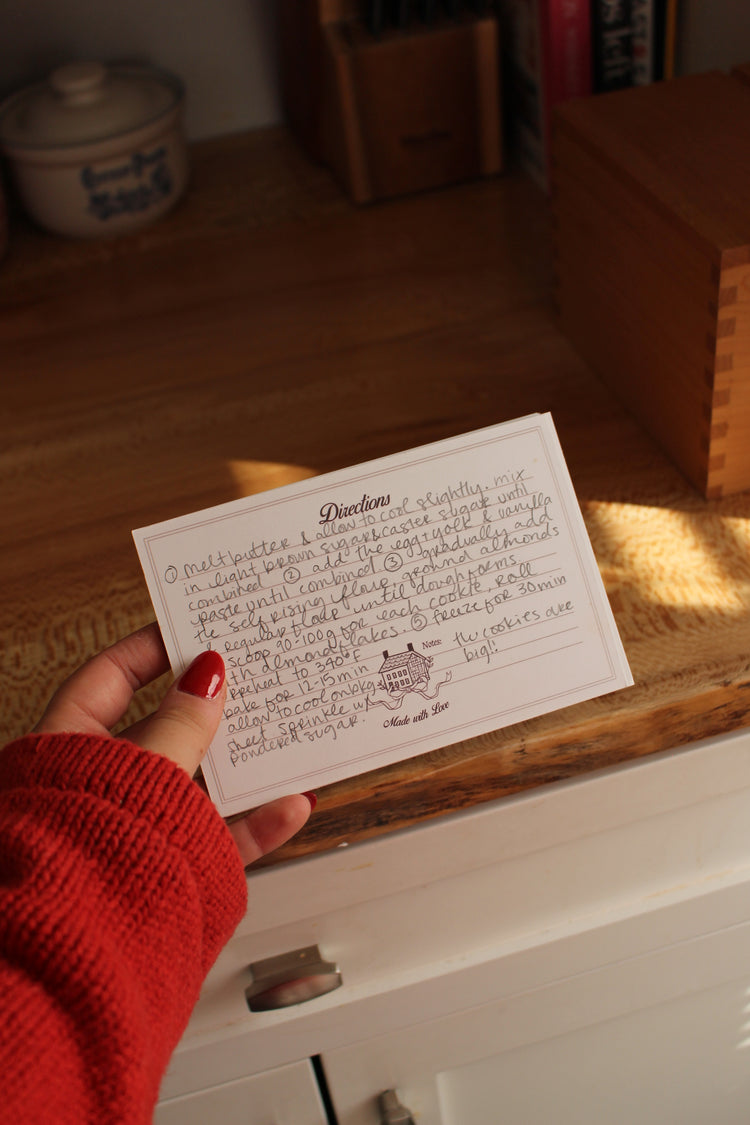 Directions
① melt butter & allow to cool slightly. mix
in light brown sugar & caster sugar until
combined ② add the egg + yolk & vanilla
paste until combined ③ gradually add
the self rising flour, ground almonds
& regular flour until dough forms
scoop 90-100g for each cookie, roll
almond flakes. ⑤ freeze for 30 min
Preheat to 340°F
bake for 12-15 min
allow to cool on bkg
sheet sprinkle w/
powdered sugar.
Notes:
the cookies are
big!!
Made with Love